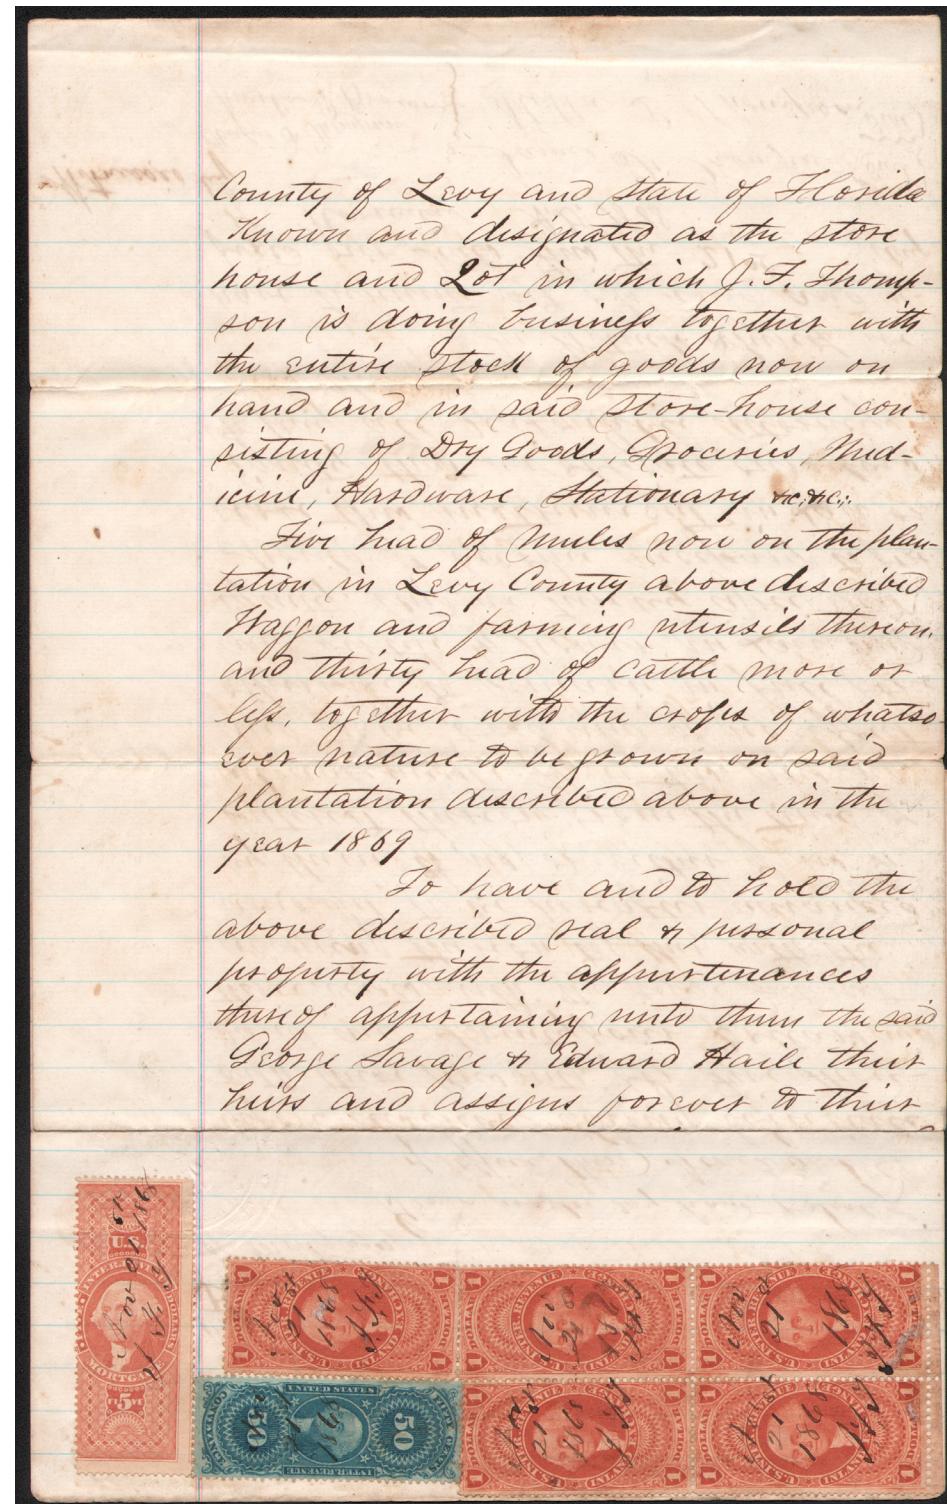 County of Levy and State of Florida
Known and designated as the store
house and Lot in which J. F. Thomp-
son is doing business together with
the entire stock of goods now on
hand and in said store-house con-
sisting of Dry Goods, Groceries, Med-
icine, Hardware, Stationary &c; &c;.
Five head of mules now on the plan-
tation in Levy County above described
Waggon and farming utensils thereon,
and thirty head of cattle more or
less, together with the crops of whatso
ever nature to be grown on said
plantation described above in the
year 1869
To have and to hold the
above described real & personal
property with the appurtenances
thereof appertaining unto them the said
George Savage & Edward Haile their
heirs and assigns forever to their
U.S.
INTER. REV.
DOLLARS
MORTGAGE
FI 5 VE
Nov 21 1868
1 INLAND EXCHANGE 1
U.S. INTER. REVENUE
ONE DOLLAR
Nov 21
1868
UNITED STATES
50 50
CONVEYANCE
FIFTY CENTS
INTER. REVENUE